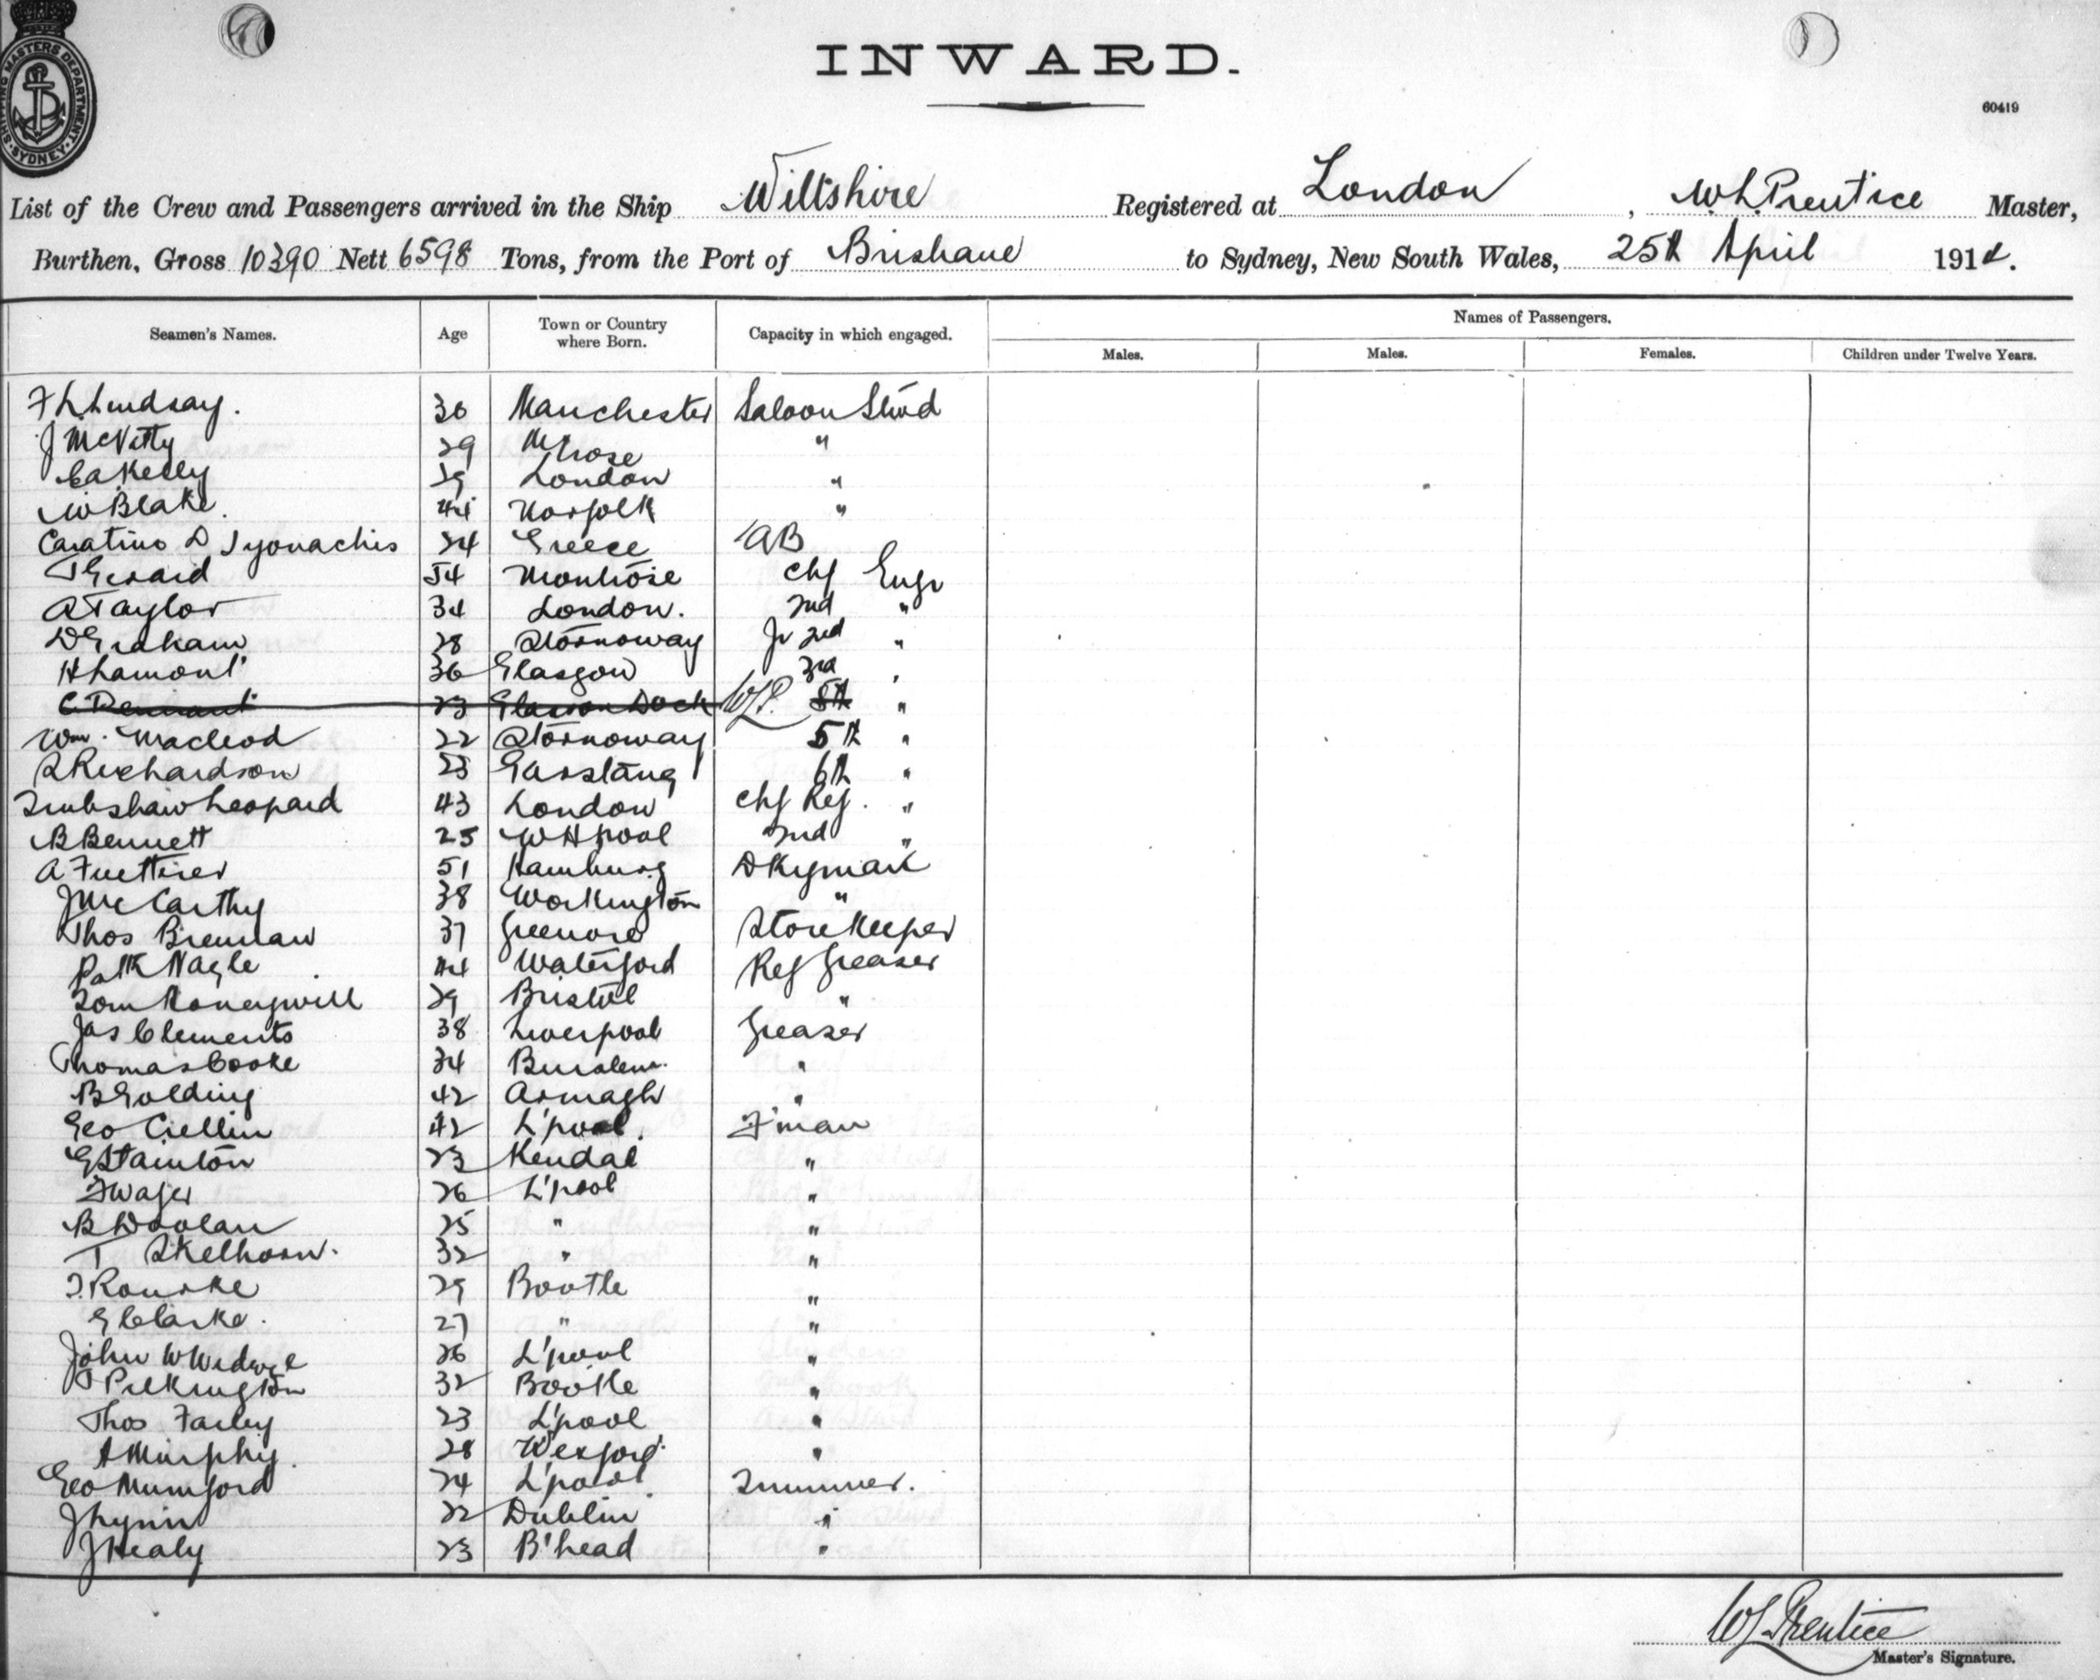 SHIPPING MASTERS DEPARTMENT. SYDNEY.
INWARD.
60419
List of the Crew and Passengers arrived in the Ship Wiltshire Registered at London, W.L. Prentice Master,
Burthen, Gross 10390 Nett 6598 Tons, from the Port of Brisbane to Sydney, New South Wales, 25th April 1914.
Seamen's Names. Age Town or Country where Born. Capacity in which engaged. Names of Passengers.
Males. Males. Females. Children under Twelve Years.
F L Lindsay. 30 Manchester Saloon Stwd
J McVitty 29 Mlrose "
C A Kelly 29 London "
W Blake. 44 Norfolk "
D 24 Greece AB
T Gerard 54 Montrose Chf Engr
A Taylor 34 London. 2nd "
D Graham 28 Stornoway Jr 2nd "
H Lamont 36 Glasgow 3rd "
C Tennant 23 Glasson Dock W L P. "
Wm. Macleod 22 Stornoway 5th "
S Richardson 23 Garstang 6th "
Leopard 43 London Chf Ref. "
B Bennett 25 W H pool 2nd "
A Fuettirer 51 Hamburg Dkyman
J McCarthy 38 Workington "
Thos Brennan 37 Greenore Storekeeper
Patk Nagle 44 Waterford Ref Greaser
Tom Honeywill 29 Bristol "
Jas Clements 38 Liverpool Greaser
Thomas Cooke 34 Burslem. "
B Golding 42 Armagh "
Geo Crellin 42 L'pool. F'man
G Stainton 23 Kendal "
F Wager 26 L'pool "
B Doolan 25 " "
T Skelhorn. 32 " "
T. Rourke 29 Bootle "
G Clarke. 27 " "
John W 26 L'pool "
T Pilkington 32 Bootle "
Thos Farley 23 L'pool "
A Murphy. 28 Wexford. "
Geo Mumford 24 L'pool Trimmer.
J Lynn 22 Dublin "
J Healy 23 B'head "
W L Prentice
Master's Signature.